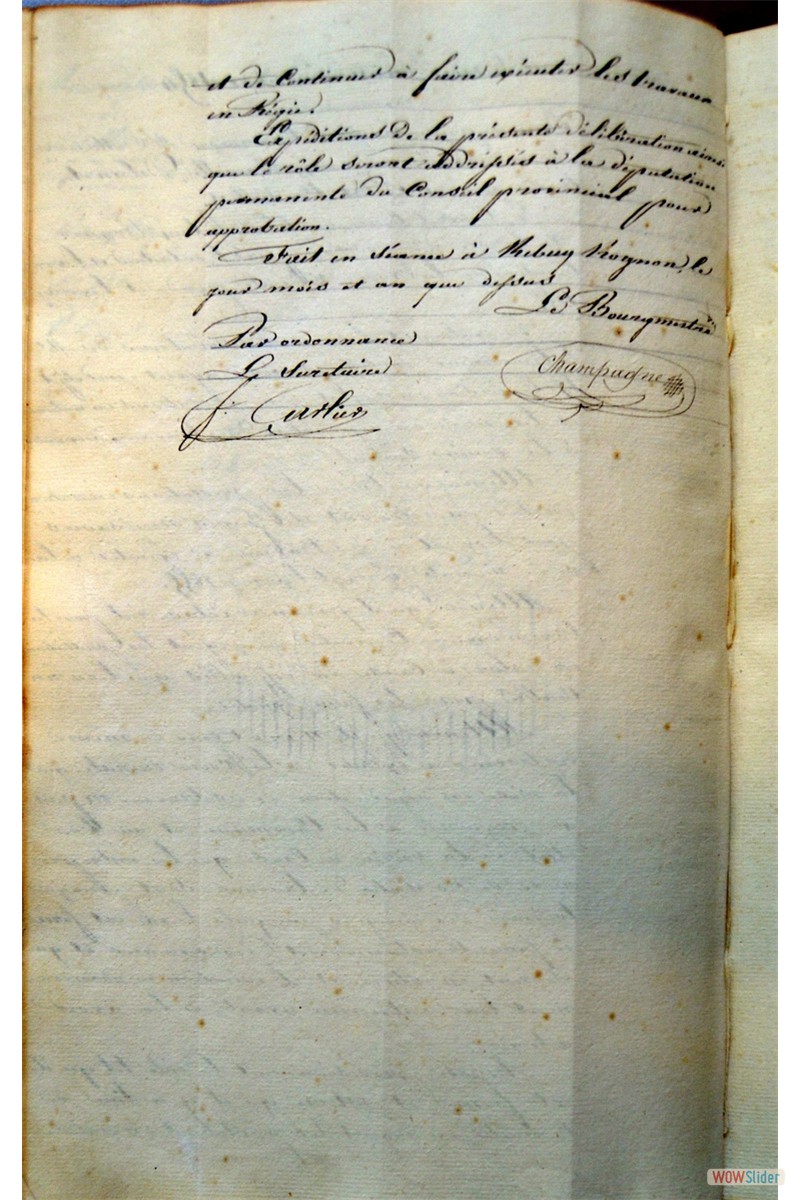 et de Continuer à faire exécuter les travaux
en Régie.
Expéditions de la présente délibération ainsi
que le rôle seront addressés à la députation
permanente du Conseil provincial pour
approbation.
Fait en séance à Rebecq Rognon, le
jour mois et an que dessus
Le Bourgmestre
Par ordonnance
Le Secretaire
Champagne
J. Carlier
WOWSlider